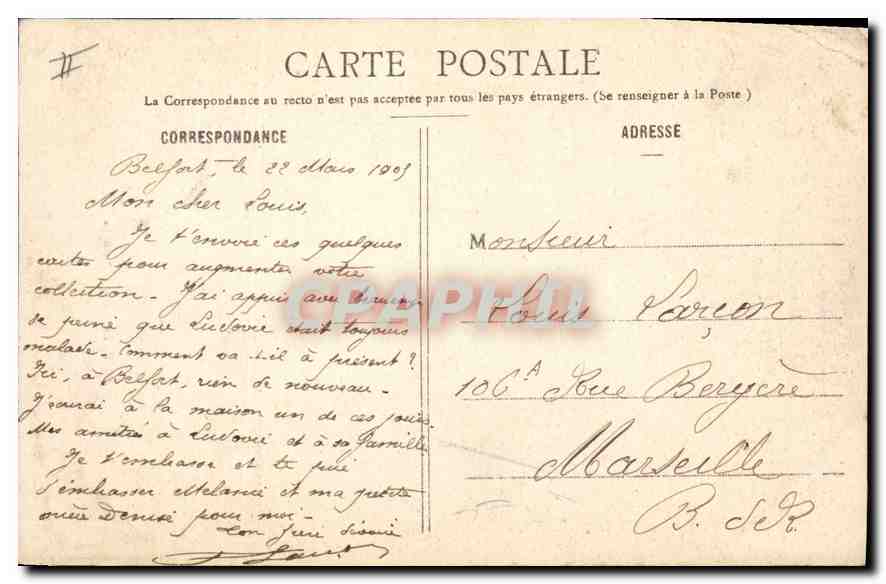 II
CARTE POSTALE
La Correspondance au recto n'est pas acceptée par tous les pays étrangers. (Se renseigner à la Poste)
CORRESPONDANCE
ADRESSE
Belfort, le 22 Mars 1905
Mon cher Louis,
Je t'envoie ces quelques
cartes pour augmenter votre
collection - J'ai appris avec beaucoup
de peine que Ludovic était toujours
malade - Comment va t-il à présent ?
Ici, à Belfort, rien de nouveau -
J'écrirai à la maison un de ces jours -
Mes amitiés à Ludovic et à sa famille
Je t'embrasse et te prie
d'embrasser Mélanie et ma petite
nièce Denise pour moi -
Ton
Monsieur
Louis Larçon
106A Rue Bergère
Marseille
B. d R.
CPAPHIL